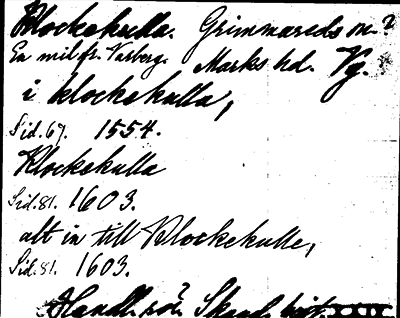 Klockekulla. Grimmareds sn?
En mil fr. Varberg. Marks hd. Vg.
i klockekulla,
Sid. 67. 1554.
Klockekulla
Sid. 81. 1603.
alt in till Klockekulle,
Sid. 81. 1603.
Handl. rör. Skand. hist. XXIX